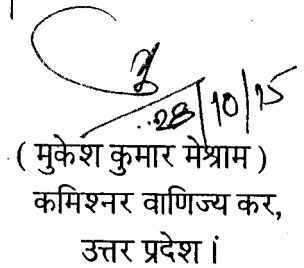 28/10/15
( मुकेश कुमार मेश्राम )
कमिश्नर वाणिज्य कर,
उत्तर प्रदेश ।